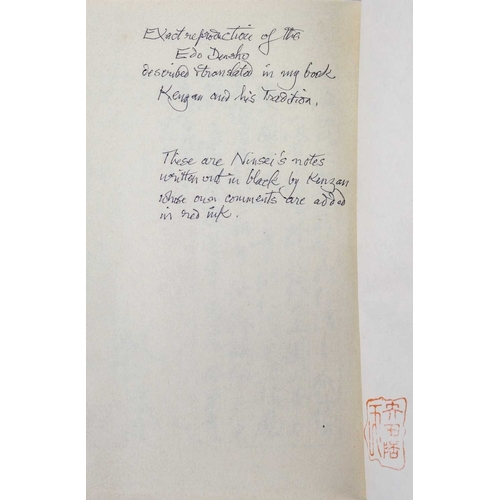 Exact reproduction of the
Edo Densho
described & translated in my book
Kenzan and his Tradition.
These are Ninsei's notes
written out in black by Kenzan
whose own comments are added
in red ink.